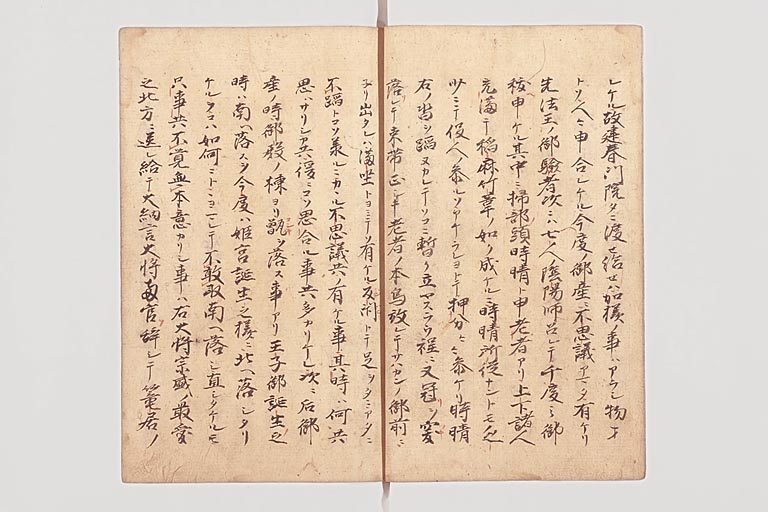 レケル故建春門院タニ渡セ給ヒセハ加様ノ事ハアラシ物ヲ
トソ人々申合レケル今度ノ御産ニ不思議アマタ有ケリ
先法王ノ御驗者次ニハ七人陰陽師召レテ千度ノ御
祓申ケル其中ニ掃部頭時晴ト申老者アリ上下諸人
充満テ稲麻竹葦ノ如ノ成ケルニ時晴所從ナントモ乏
少ニテ役人ソ参ルソアケラレヨトテ押分々々参ケリ時晴
右ノ沓ヲ蹈ヌカレテソコニ暫ク立ヤスラウ程ニ又冠ヲ突
落レテ束帯正シキ老者ノ本鳥放テサハカリ御前ニ
子リ出タレハ満座トヨミテソ有ケル反閇トテ足ヲタニアタニ
不蹈トコソ承ルニカヽル不思議共ノ有ケル事其時ハ何共
思ハサリシカ共後ニコソ思合ル事共多カリケレ次ニ后御
産ノ時御殿ノ棟ヨリ甑ヲ落ス事アリ王子御誕生之
時ハ南ヘ落スヲ今度ハ姫宮誕生之様ニ北ヘ落シタリ
ケルヲコハ如何ニトヨミテ不敢取南ヘ落シ直シタケルモ
只事共不覚無本意カリシ事ハ右大将宗盛ノ最愛
之北方ニ送レ給テ大納言大将両官辞シテ篭居ノ